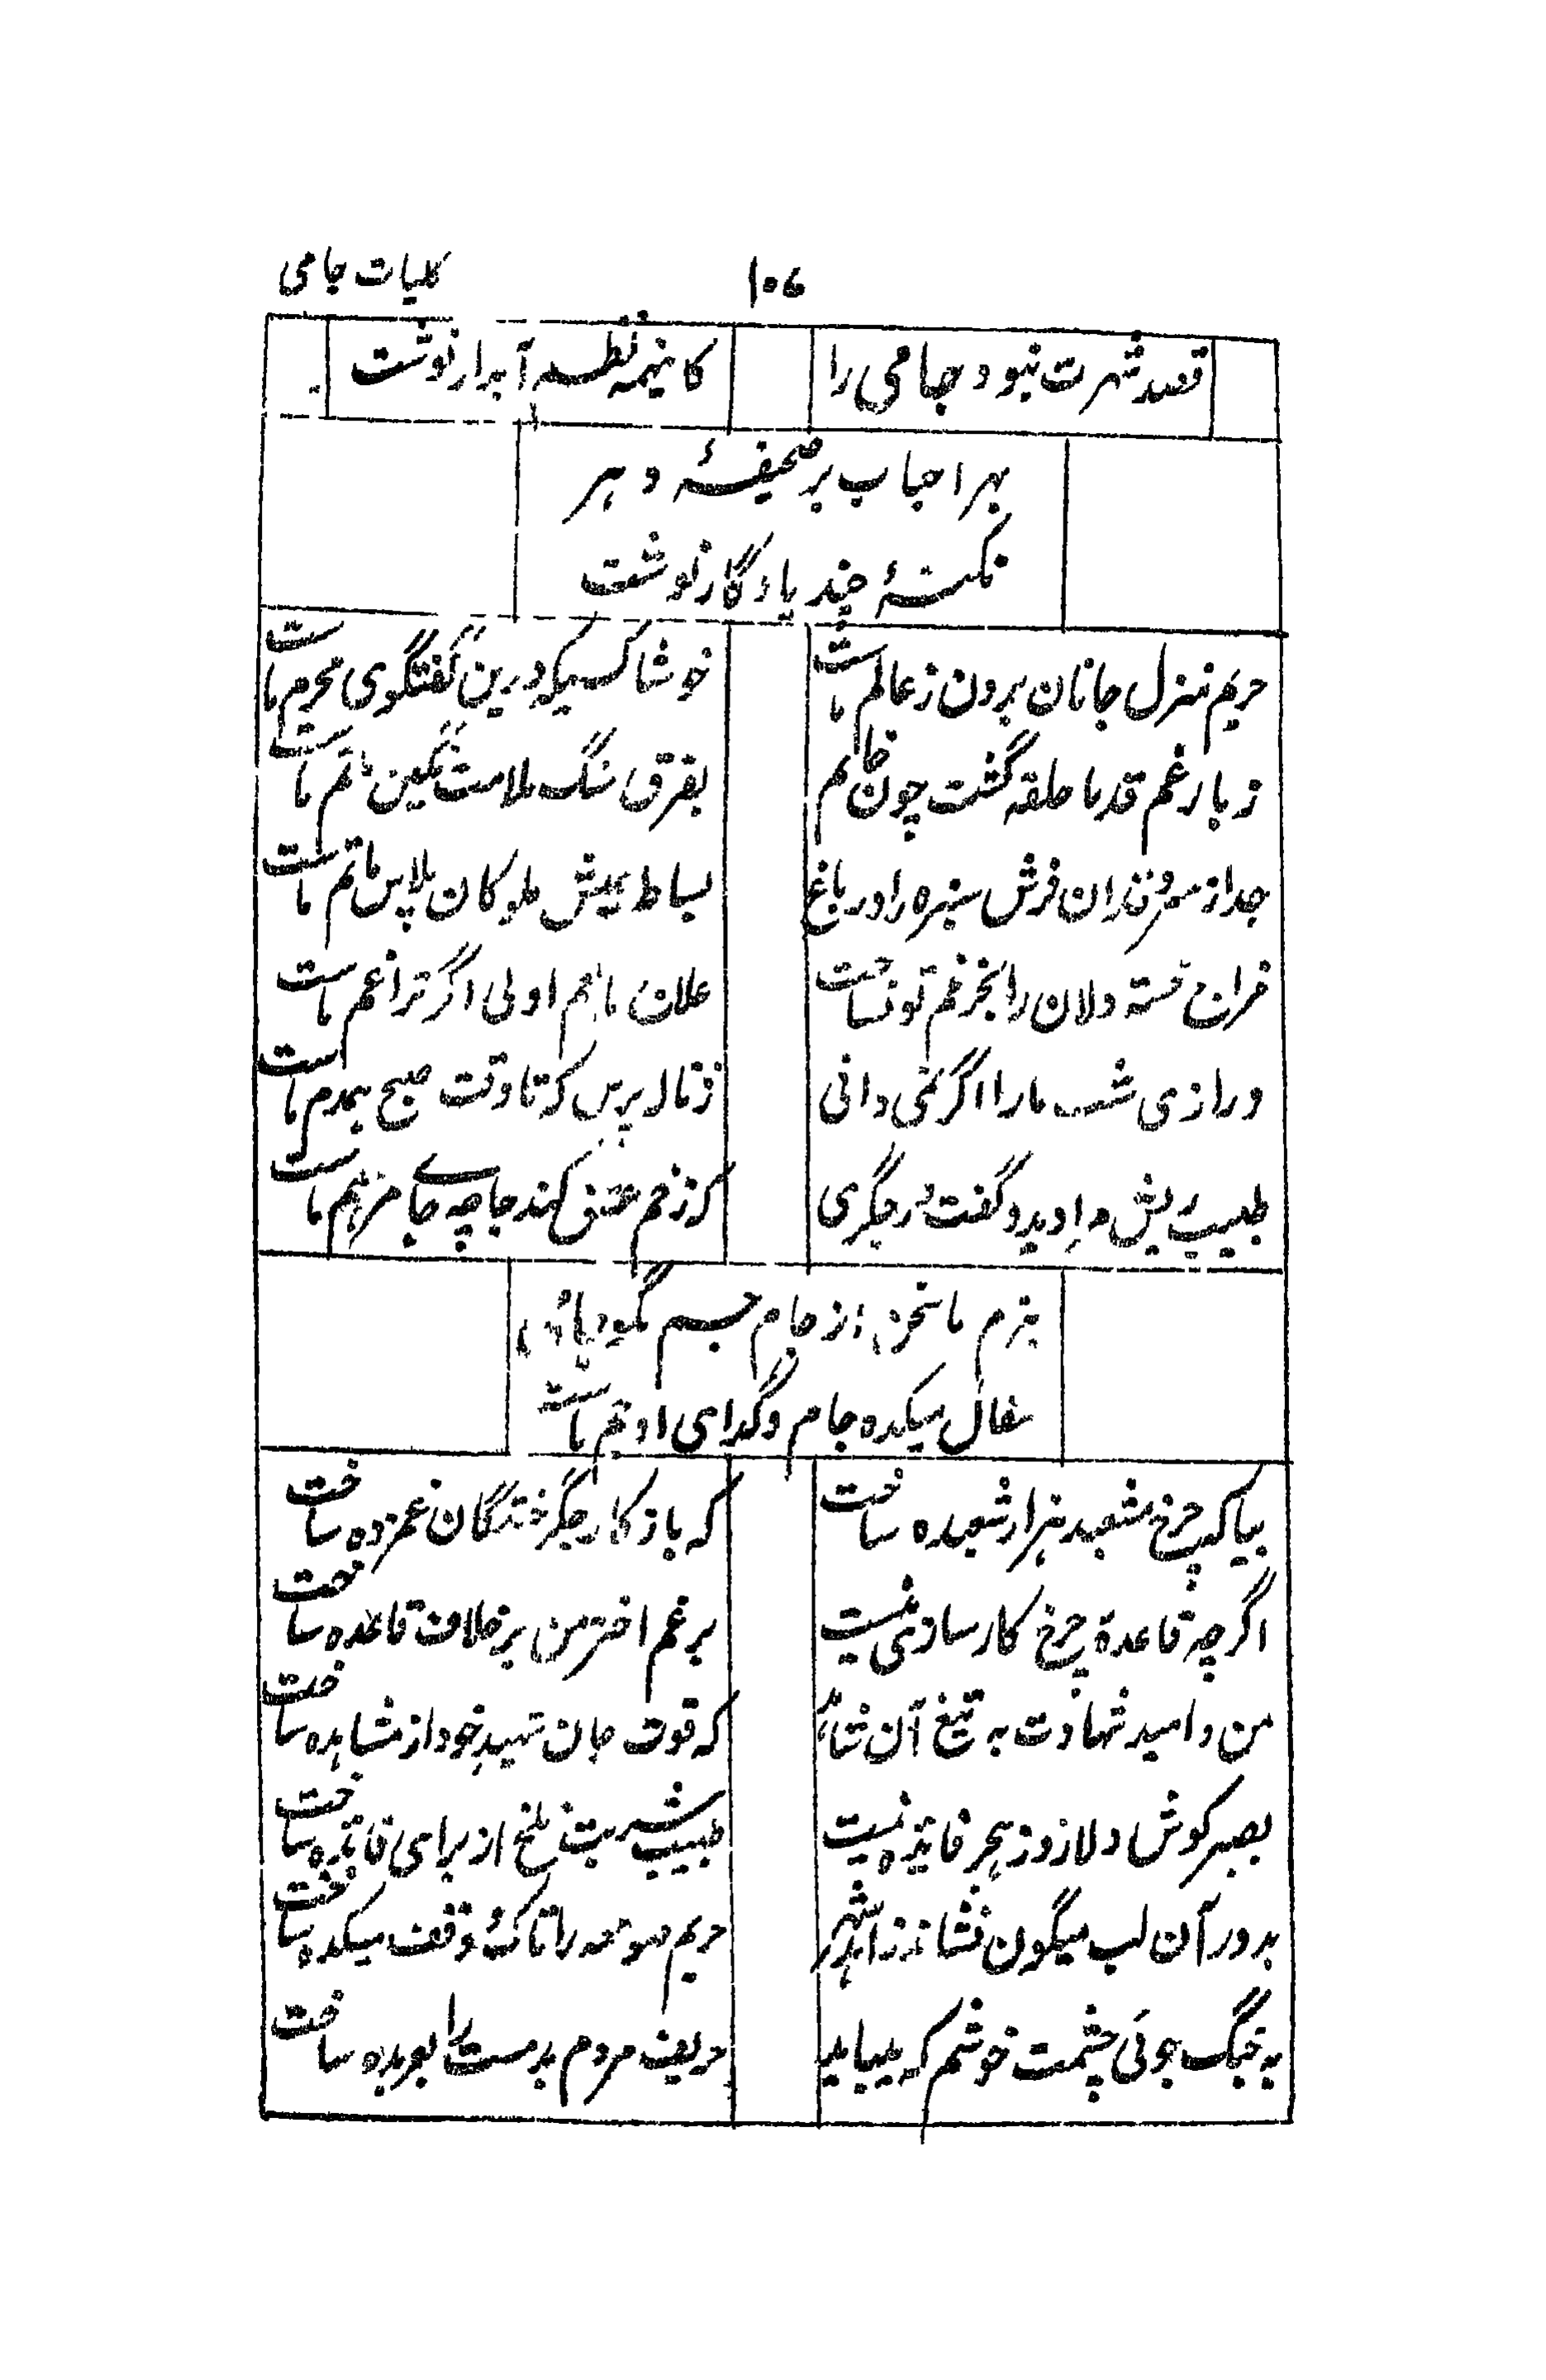 ۱۰۶
کلیات جامی
قصد شهرت نبود جامی را
کاینهمه نظم آبدار نوشت
بهر احباب بر صحیفهٔ دهر
نکتهٔ چند یادگار نوشت
حریم منزل جانان برون ز عالم ماست
خوشا کسیکه درین گفتگوی محرم ماست
ز بار غم قد ما حلقه گشت چون خاتم
بفرق سنگ ملامت نگین خاتم ماست
جدا ز سرو قدان فرش سبزه را در باغ
بساط عیش ملوکان پلاس ماتم ماست
فراغ خسته دلان را بجز غم تو نساخت
علاج ما هم اولی اگر ترا غم ماست
درازی شب ما را اگر نمی دانی
ز ناله پرس که تا وقت صبح همدم ماست
طبیب ریش مرا دید و گفت در جگری
که زخم عشق کند جا چه جای مرهم ماست
ببزم ما سخن از جام جم مگو
سفال میکده جام و گدای او جم ماست
بیا که چرخ مشعبد هزار شعبده ساخت
که باز کار جگر خستگان غمزده ساخت
اگرچه قاعدهٔ چرخ کار سازی نیست
برغم اختر من بر خلاف قاعده ساخت
من و امید شهادت به تیغ آن شاهد
که قوت جان شهید خود از مشاهده ساخت
بصبر کوش دلا روز هجر فایده نیست
طبیب شربت تلخ از برای فایده ساخت
بدور آن لب میگون نشاند زاهد شهر
حریم صومعه را تاک و وقف میکده ساخت
به جنگ جوئی چشمت خوشم که
حریف مردم بدمست را بعربده ساخت